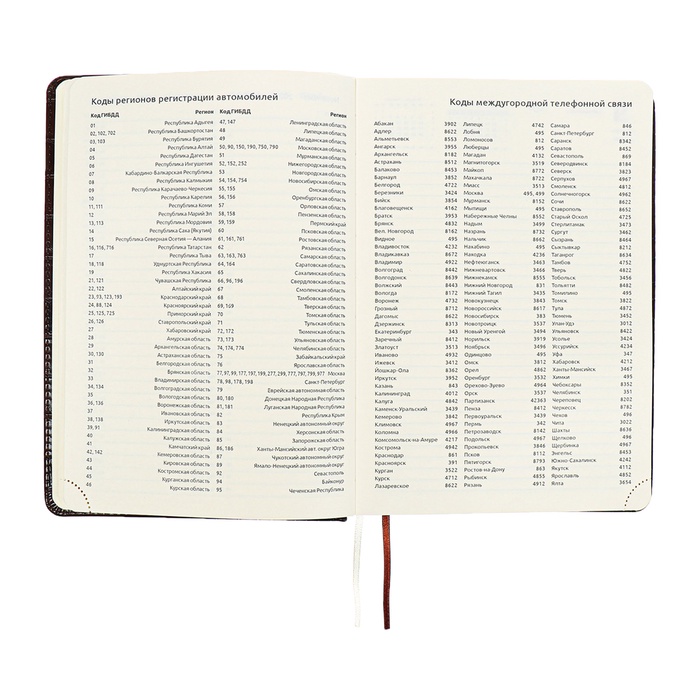 Коды регионов регистрации автомобилей
Код ГИБДД Регион Код ГИБДД Регион
01 Республика Адыгея 47, 147 Ленинградская область
02, 102, 702 Республика Башкортостан 48 Липецкая область
03, 103 Республика Бурятия 49 Магаданская область
04 Республика Алтай 50, 90, 150, 190, 750, 790 Московская область
05 Республика Дагестан 51 Мурманская область
06 Республика Ингушетия 52, 152, 252 Нижегородская область
07 Кабардино-Балкарская Республика 53 Новгородская область
08 Республика Калмыкия 54, 154, 754 Новосибирская область
09 Республика Карачаево-Черкесия 55, 155 Омская область
10 Республика Карелия 56, 156 Оренбургская область
11, 111 Республика Коми 57 Орловская область
12 Республика Марий Эл 58, 158 Пензенская область
13, 113 Республика Мордовия 59, 159 Пермский край
14 Республика Саха (Якутия) 60 Псковская область
15 Республика Северная Осетия — Алания 61, 161, 761 Ростовская область
16, 116, 716 Республика Татарстан 62 Рязанская область
17 Республика Тыва 63, 163, 763 Самарская область
18, 118 Удмуртская Республика 64, 164 Саратовская область
19 Республика Хакасия 65 Сахалинская область
21, 121 Чувашская Республика 66, 96, 196 Свердловская область
22, 122 Алтайский край 67 Смоленская область
23, 93, 123, 193 Краснодарский край 68 Тамбовская область
24, 88, 124 Красноярский край 69, 169 Тверская область
25, 125, 725 Приморский край 70 Томская область
26, 126 Ставропольский край 71 Тульская область
27 Хабаровский край 72, 172 Тюменская область
28 Амурская область 73, 173 Ульяновская область
29 Архангельская область 74, 174, 774 Челябинская область
30, 130 Астраханская область 75 Забайкальский край
31 Белгородская область 76 Ярославская область
32 Брянская область 77, 97, 99, 177, 197, 199, 277, 299, 777, 797, 799, 977 Москва
33 Владимирская область 78, 98, 178, 198 Санкт-Петербург
34, 134 Волгоградская область 79 Еврейская автономная область
35 Вологодская область 80, 180 Донецкая Народная Республика
36, 136 Воронежская область 81, 181 Луганская Народная Республика
37 Ивановская область 82 Республика Крым
38, 138 Иркутская область 83 Ненецкий автономный округ
39, 91 Калининградская область 84 Херсонская область
40 Калужская область 85 Запорожская область
41 Камчатский край 86, 186 Ханты-Мансийский авт. округ Югра
42, 142 Кемеровская область 87 Чукотский автономный округ
43 Кировская область 89 Ямало-Ненецкий автономный округ
44 Костромская область 92 Севастополь
45 Курганская область 94 Байконур
46 Курская область 95 Чеченская Республика
Коды междугородной телефонной связи
Абакан 3902 Липецк 4742 Самара 846
Адлер 8622 Лобня 495 Санкт-Петербург 812
Альметьевск 8553 Ломоносов 812 Саранск 8342
Ангарск 3955 Люберцы 495 Саратов 8452
Архангельск 8182 Магадан 4132 Севастополь 869
Астрахань 8512 Магнитогорск 3519 Северодвинск 8184
Балаково 8453 Майкоп 8772 Северск 3823
Барнаул 3852 Махачкала 8722 Серпухов 4967
Белгород 4722 Миасс 3513 Смоленск 4812
Березники 3424 Москва 495, 499 Солнечногорск 4962
Бийск 3854 Мурманск 8152 Сочи 8622
Благовещенск 4162 Мытищи 495 Ставрополь 8652
Братск 3953 Набережные Челны 8552 Старый Оскол 4725
Брянск 4832 Надым 3499 Стерлитамак 3473
Вел. Новгород 8162 Назрань 8732 Сургут 3462
Видное 495 Нальчик 8662 Сызрань 8464
Владивосток 4232 Нахабино 495 Сыктывкар 8212
Владикавказ 8672 Находка 4236 Таганрог 8634
Владимир 4922 Нефтекамск 3463 Тамбов 4752
Волгоград 8442 Нижневартовск 3466 Тверь 4822
Волгодонск 8639 Нижнекамск 8555 Тобольск 3456
Волжский 8443 Нижний Новгород 831 Тольятти 8482
Вологда 8172 Нижний Тагил 3435 Томилино 495
Воронеж 4732 Новокузнецк 3843 Томск 3822
Грозный 8712 Новороссийск 8617 Тула 4872
Дагомыс 8622 Новосибирск 383 Тюмень 3452
Дзержинск 8313 Новотроицк 3537 Улан-Удэ 3012
Екатеринбург 343 Новый Уренгой 3494 Ульяновск 8422
Заречный 8412 Норильск 3919 Усолье 3424
Златоуст 3513 Ноябрьск 3496 Уссурийск 4234
Иваново 4932 Одинцово 495 Уфа 347
Ижевск 3412 Омск 3812 Хабаровск 4212
Йошкар-Ола 8362 Орел 4862 Ханты-Мансийск 3467
Иркутск 3952 Оренбург 3532 Химки 495
Казань 843 Орехово-Зуево 4964 Чебоксары 8352
Калининград 4012 Орск 3537 Челябинск 351
Калуга 4842 Партизанск 42363 Череповец 8202
Каменск-Уральский 3439 Пенза 8412 Черкесск 8782
Кемерово 3842 Первоуральск 3439 Чехов 496
Климовск 4967 Пермь 342 Чита 3022
Коломна 4966 Петрозаводск 8142 Шахты 8636
Комсомольск-на-Амуре 4217 Подольск 4967 Щелково 496
Кострома 4942 Прокопьевск 3846 Щербинка 4967
Краснодар 861 Псков 8112 Энгельс 8453
Красноярск 391 Пятигорск 8793 Южно-Сахалинск 4242
Курган 3522 Ростов-на-Дону 863 Якутск 4112
Курск 4712 Рыбинск 4855 Ярославль 4852
Лазаревское 8622 Рязань 4912 Ялта 3654